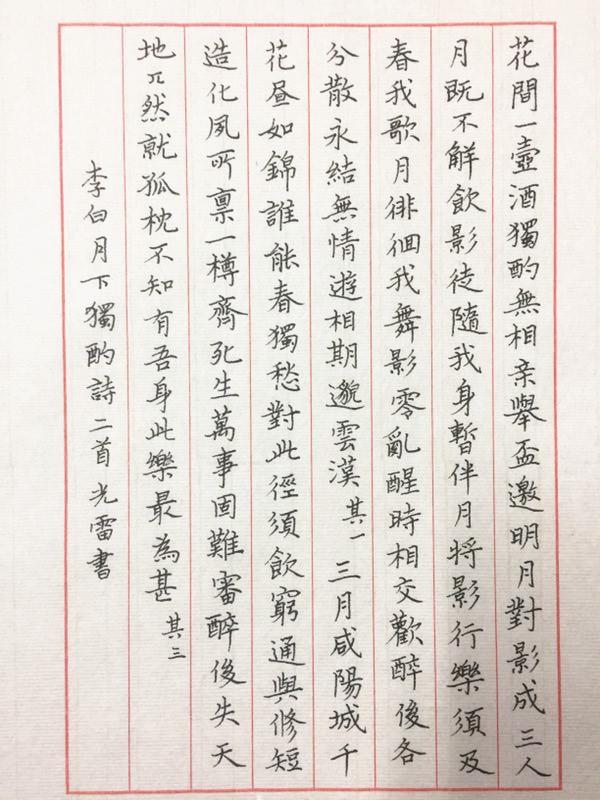 花間一壺酒獨酌無相亲舉盃邀明月對影成三人
月既不解飲影徒隨我身暫伴月将影行樂須及
春我歌月徘徊我舞影零亂醒時相交歡醉後各
分散永結無情遊相期邈雲漢其一三月咸陽城千
花昼如錦誰能春獨愁對此徑須飲窮通與修短
造化夙所禀一樽齊死生萬事固難審醉後失天
地兀然就孤枕不知有吾身此樂最為甚其三
李白月下獨酌詩二首光雷書